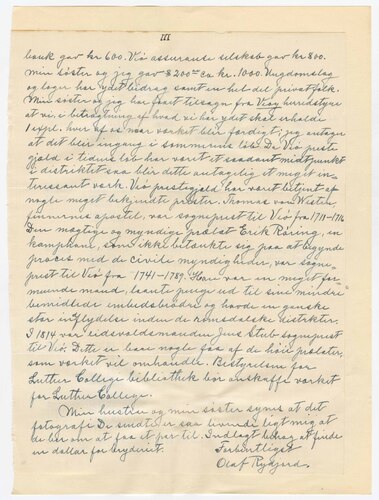 III
bank gav kr 600. Veö assuranse selskab gav kr 800.
Min söster og jeg gav $200 ca kr. 1000. Ungdomslag
og lager har ydet bidrag samt en hel del privat folk.
Min söster og jeg har faat tilsagn fra Veøy herredstyre
at vi i betragtning af hvad vi har ydet skal erholde
1 expl. hver af os naar verket blir færdigt, jeg antager
at det blir engang i sommerens löb. Da Veö preste
gjeld i tidens löb har været et saadant midtpunkt
i distriktet saa blir dette antagelig et meget in-
teressant verk. Veö prestegjeld har været betjent af
nogle meget bekjendte prester. Thomas von Westen
finnernes apostel, var sogneprest til Veö fra 1710-1716
Den mægtige og myndige prælat Erik Røring, en
kamphane, som ikke betænkte sig paa at begynde
proces med de civile myndigheder, var sogne-
prest til Veö fra 1741-1789. Han var en meget for-
muende mand, laante penge ud til sine mindre
bemidlede embedsbrødre og havde en ganske
stor indflydelse inden de romsdalske distrikter.
I 1814 var eidsvoldsmanden Jens Stub sogneprest
til Veö. Dette er bare nogle faa af de höie prelater,
som verket vil omhandle. Bestyrelsen for
Luther College bibliothek bör anskaffe verket
for Luther College.
Min hustru og min söster synes at det
fotografi De sendte er saa livende ligt mig at
de ber om at faa et par til. Indlagt behag at finde
en dollar for bryderiet.
Forbindtligst
Olaf Rypjerd.